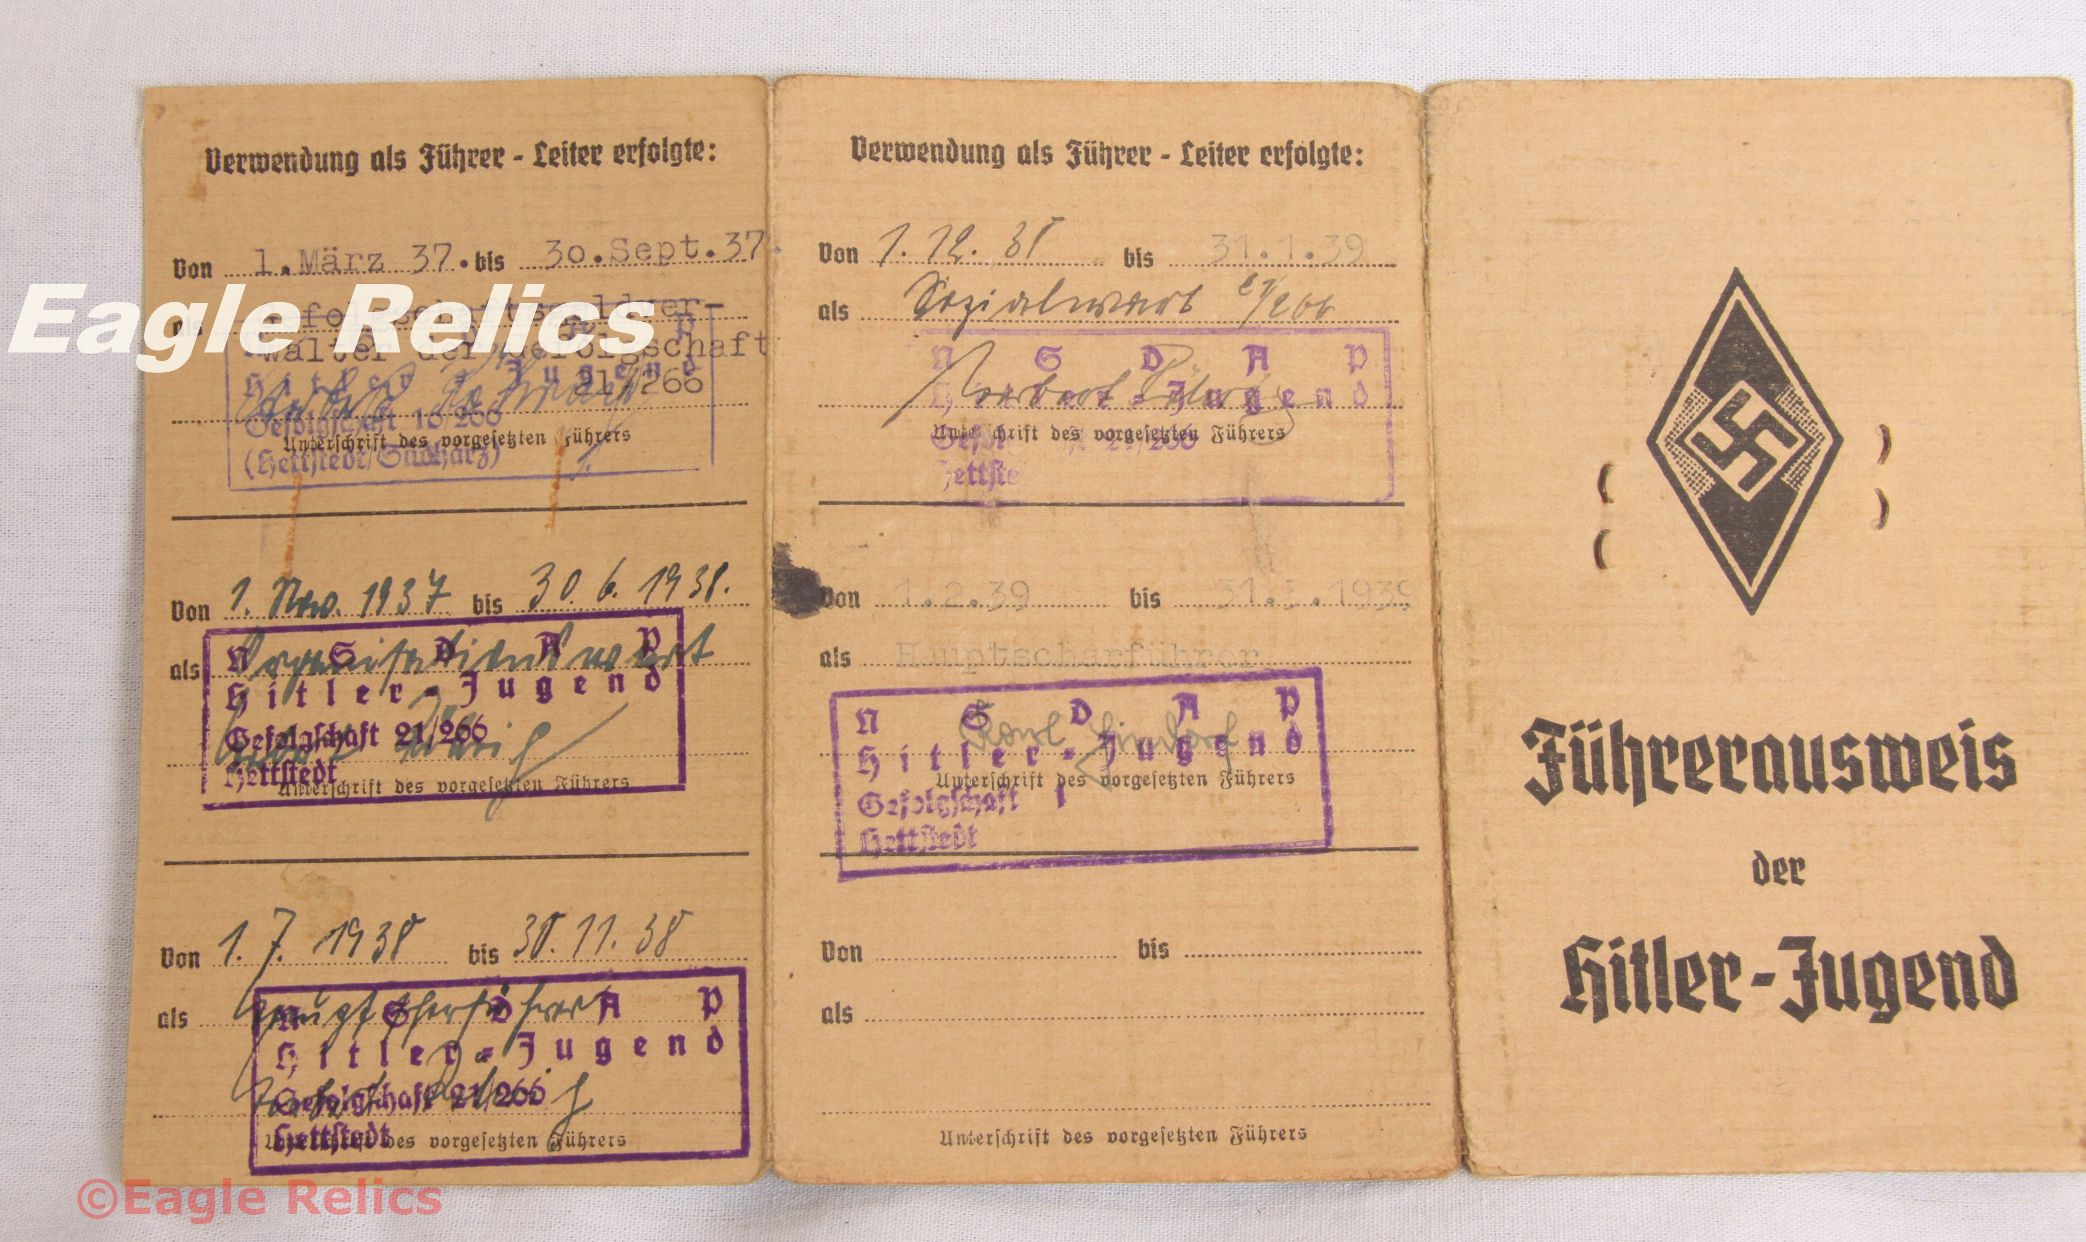 Verwendung als Führer - Leiter erfolgte:
Von 1.März 37. bis 30.Sept.37
als
walter der Gefolgschaft
21/266
Hitler - Jugend
Gefolgschaft 10/266
(Hettstedt/Südharz)
Unterschrift des vorgesetzten Führers
Von 1. Nov. 1937 bis 30.6.1938.
als Organisationswart
N S D A P
Hitler - Jugend
Gefolgschaft 21/266
Hettstedt
Unterschrift des vorgesetzten Führers
Von 1.7.1938 bis 30.11.38
als Hauptscharführer
N S D A P
Hitler - Jugend
Gefolgschaft 21/266
Hettstedt
Unterschrift des vorgesetzten Führers
Verwendung als Führer - Leiter erfolgte:
Von 1.12.38 bis 31.1.39
als Sozialwart 21/266
N S D A P
Hitler - Jugend
21/266
Unterschrift des vorgesetzten Führers
Von 1.2.39 bis 1939
als Hauptscharführer
N S D A P
Hitler - Jugend
Gefolgschaft 1
Hettstedt
Karl
Unterschrift des vorgesetzten Führers
Von bis
als
Unterschrift des vorgesetzten Führers
Führerausweis
der
Hitler-Jugend
Eagle Relics
©Eagle Relics